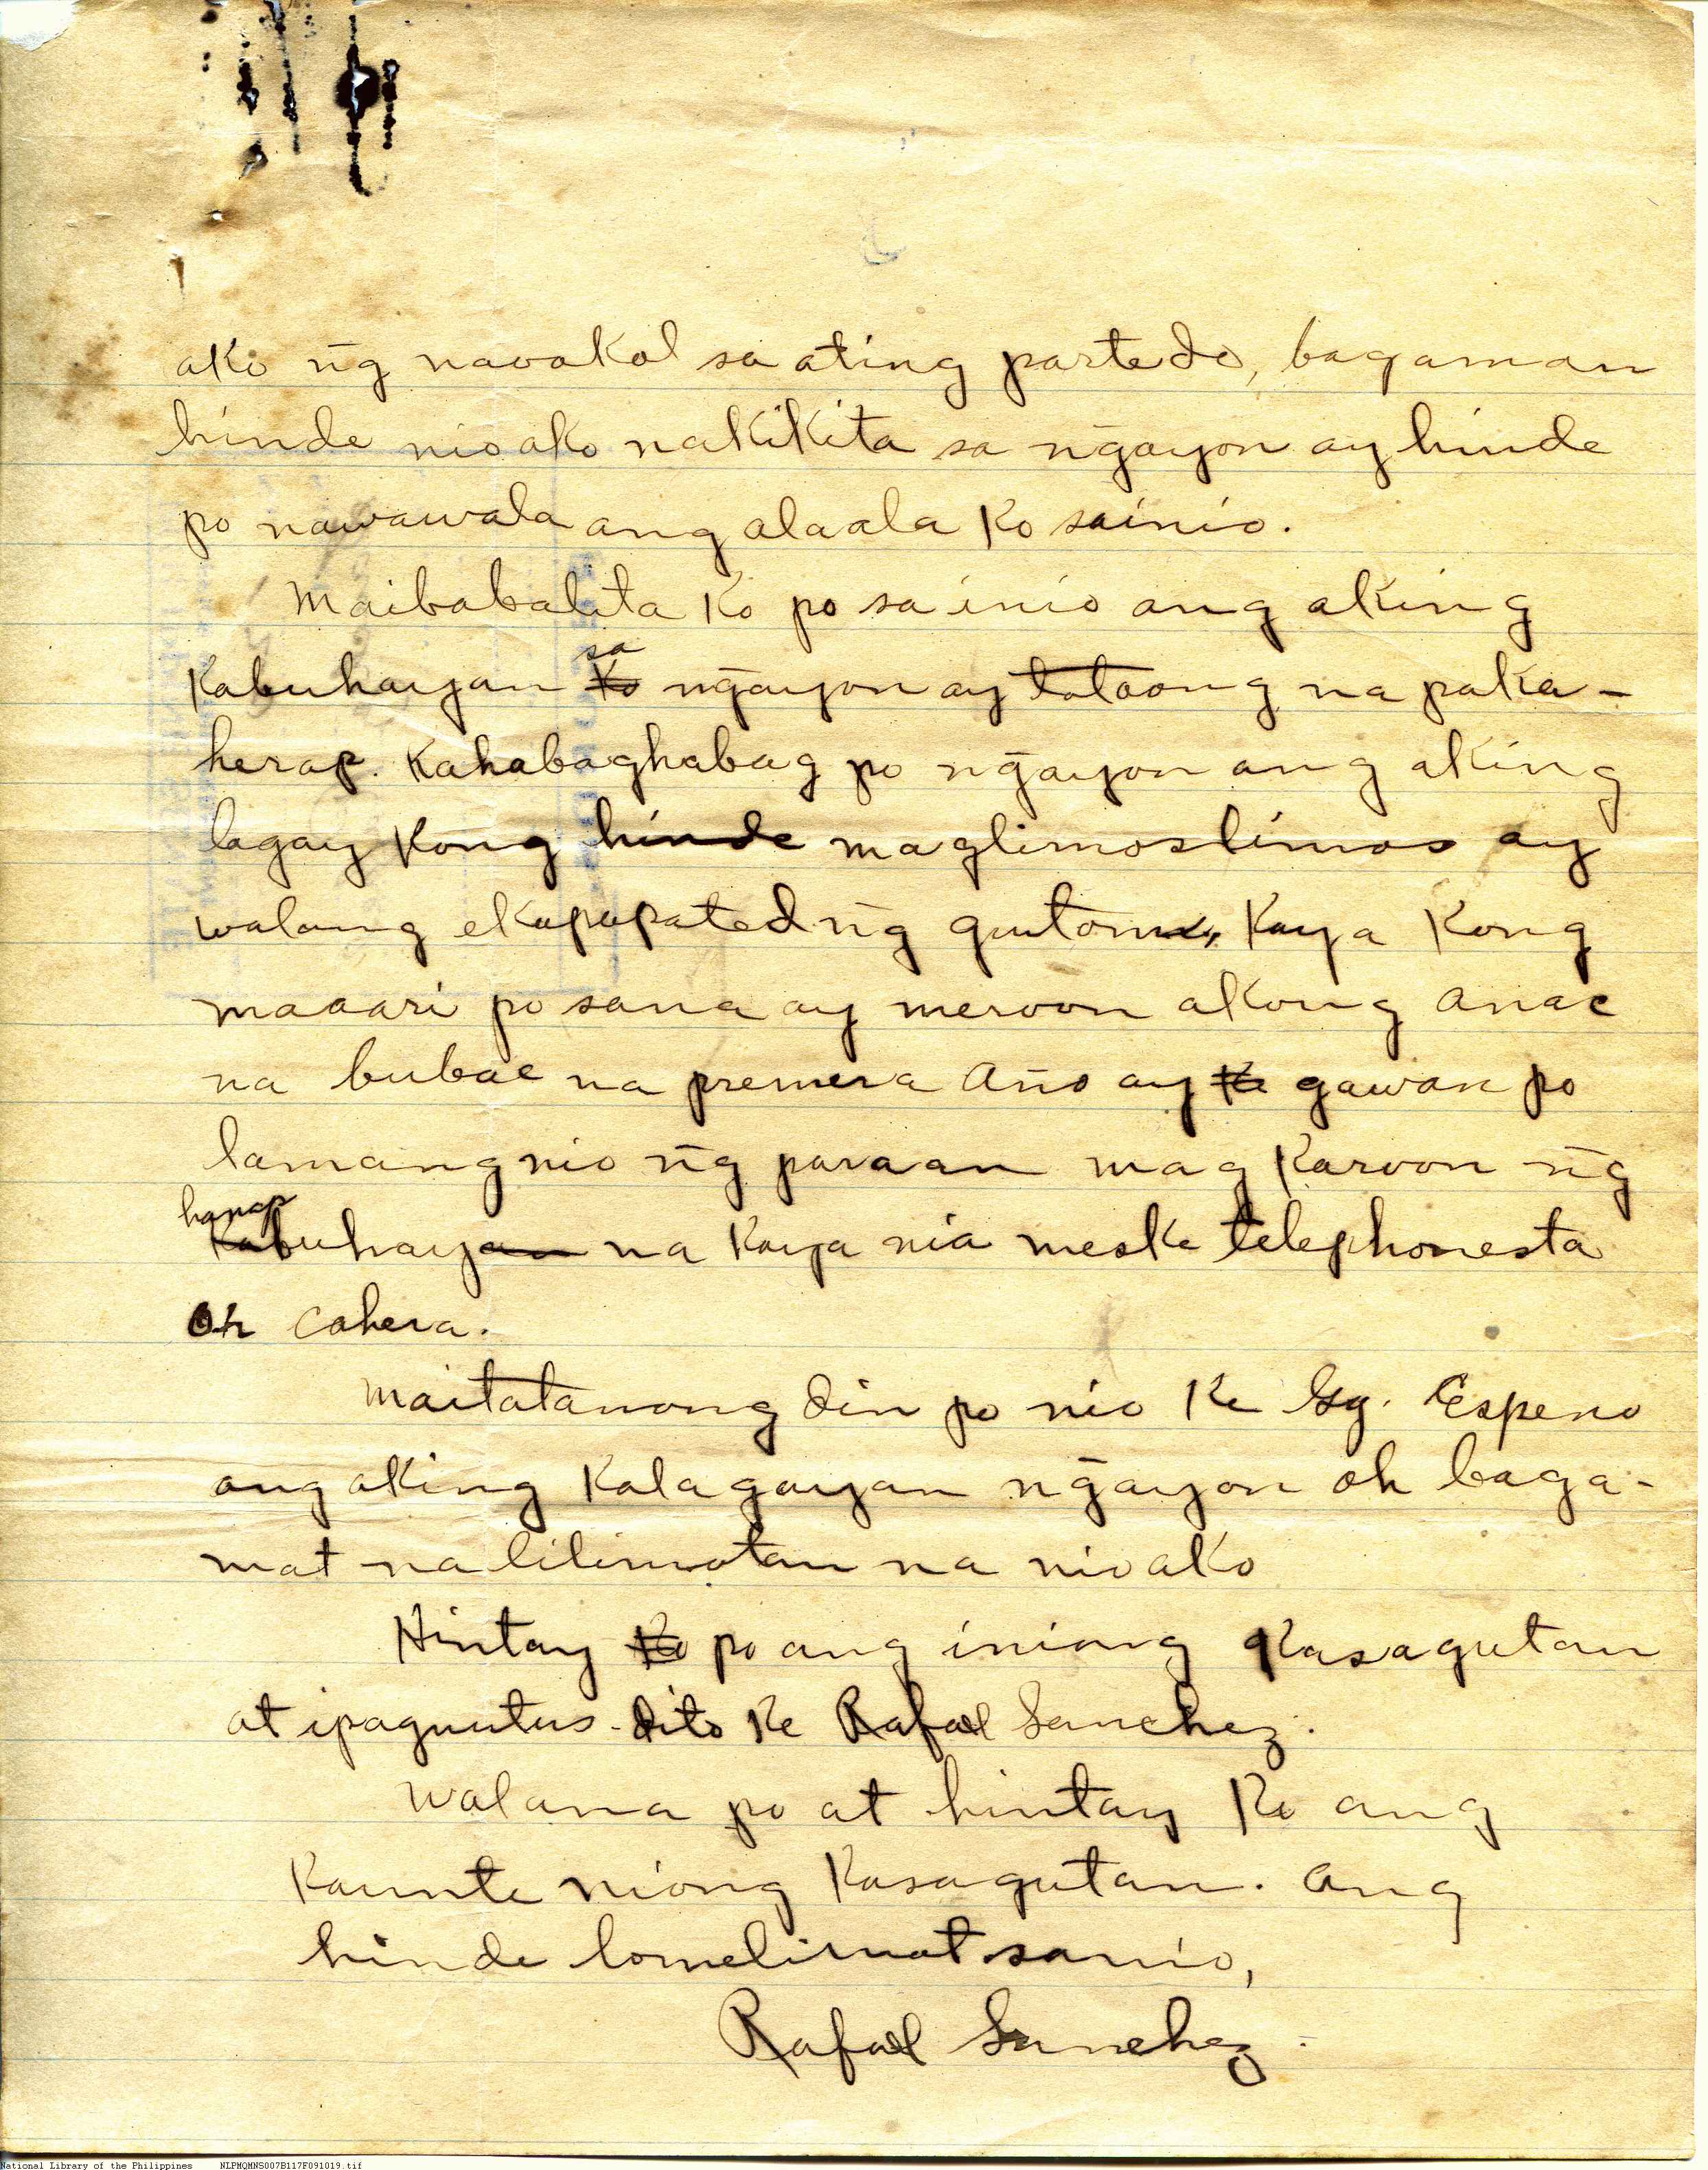 ako ng navokol sa ating partedo, bagaman
hinde nio ako nakikita sa ngayon ay hinde
po nawawala ang alaala ko sainio.
Maibabalita ko po sa inio ang aking
sa
Kabuhayan ko ngayon ay totoong na paka-
herap. Kahabaghabag po ngayon ang aking
lagay kong hinde maglimoslimos ay
walang ekapapated ng gutom, kaya kong
maaari po sana ay meroon akong anac
na bubae na premera Año ay ke gawan po
lamang nio ng paraan mag karoon ng
hanap
Kabuhayan na kaya nia meske telephonesta
oh cahera.
Maitatanong din po nio ke Gg. Espeno
ang aking kalagayan ngayon oh baga-
mat na lilimotan na nio ako
Hintay ko po ang iniong kasagutan
at ipaguutus dito ke Rafael Sanchez.
Walana po at hintay ko ang
kaunte niong kasagutan. Ang
hinde lomelimot sanio,
Rafael Sanchez
National Library of the Philippines NLPMQMNS007B117F091019.tif